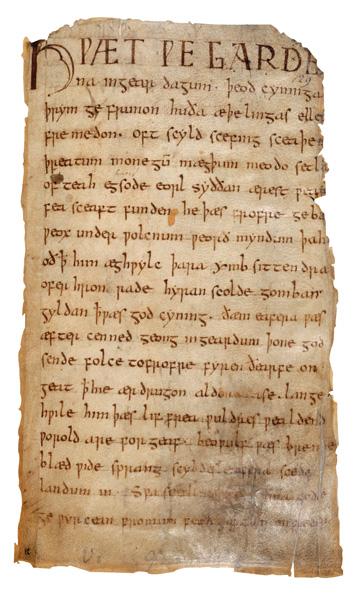 HǷÆT ǷE GARDE
na ingear dagum. þeod cyninga
þrym ge frunon huða æþelingas elle
fre medon. oft scyld scefing sceaþe
þreatum monegū mægþum meodo setl
of teah egsode eorl syððan ærest
fea sceaft funden he þæs frofre geba
ƿeox under ƿolcnum ƿeorð myndum þah
oð þ him æghƿylc þara ymb sittendra
ofer hron rade hyran scolde gomban
gyldan þ ƿæs god cyning. ðæm eafera ƿæs
æfter cenned geong ingeardum þone god
sende folce tofrofre fyren ðearfe on
geat þ hie ær drugon aldor ase. lange
hƿile him þæs lif frea ƿuldres ƿealdend
ƿorold are for geaf. beoƿulf ƿæs breme
blæd ƿide sprang scyldes eafera scede
landum in. Sƿa sceal
ge ƿyrcean fromum